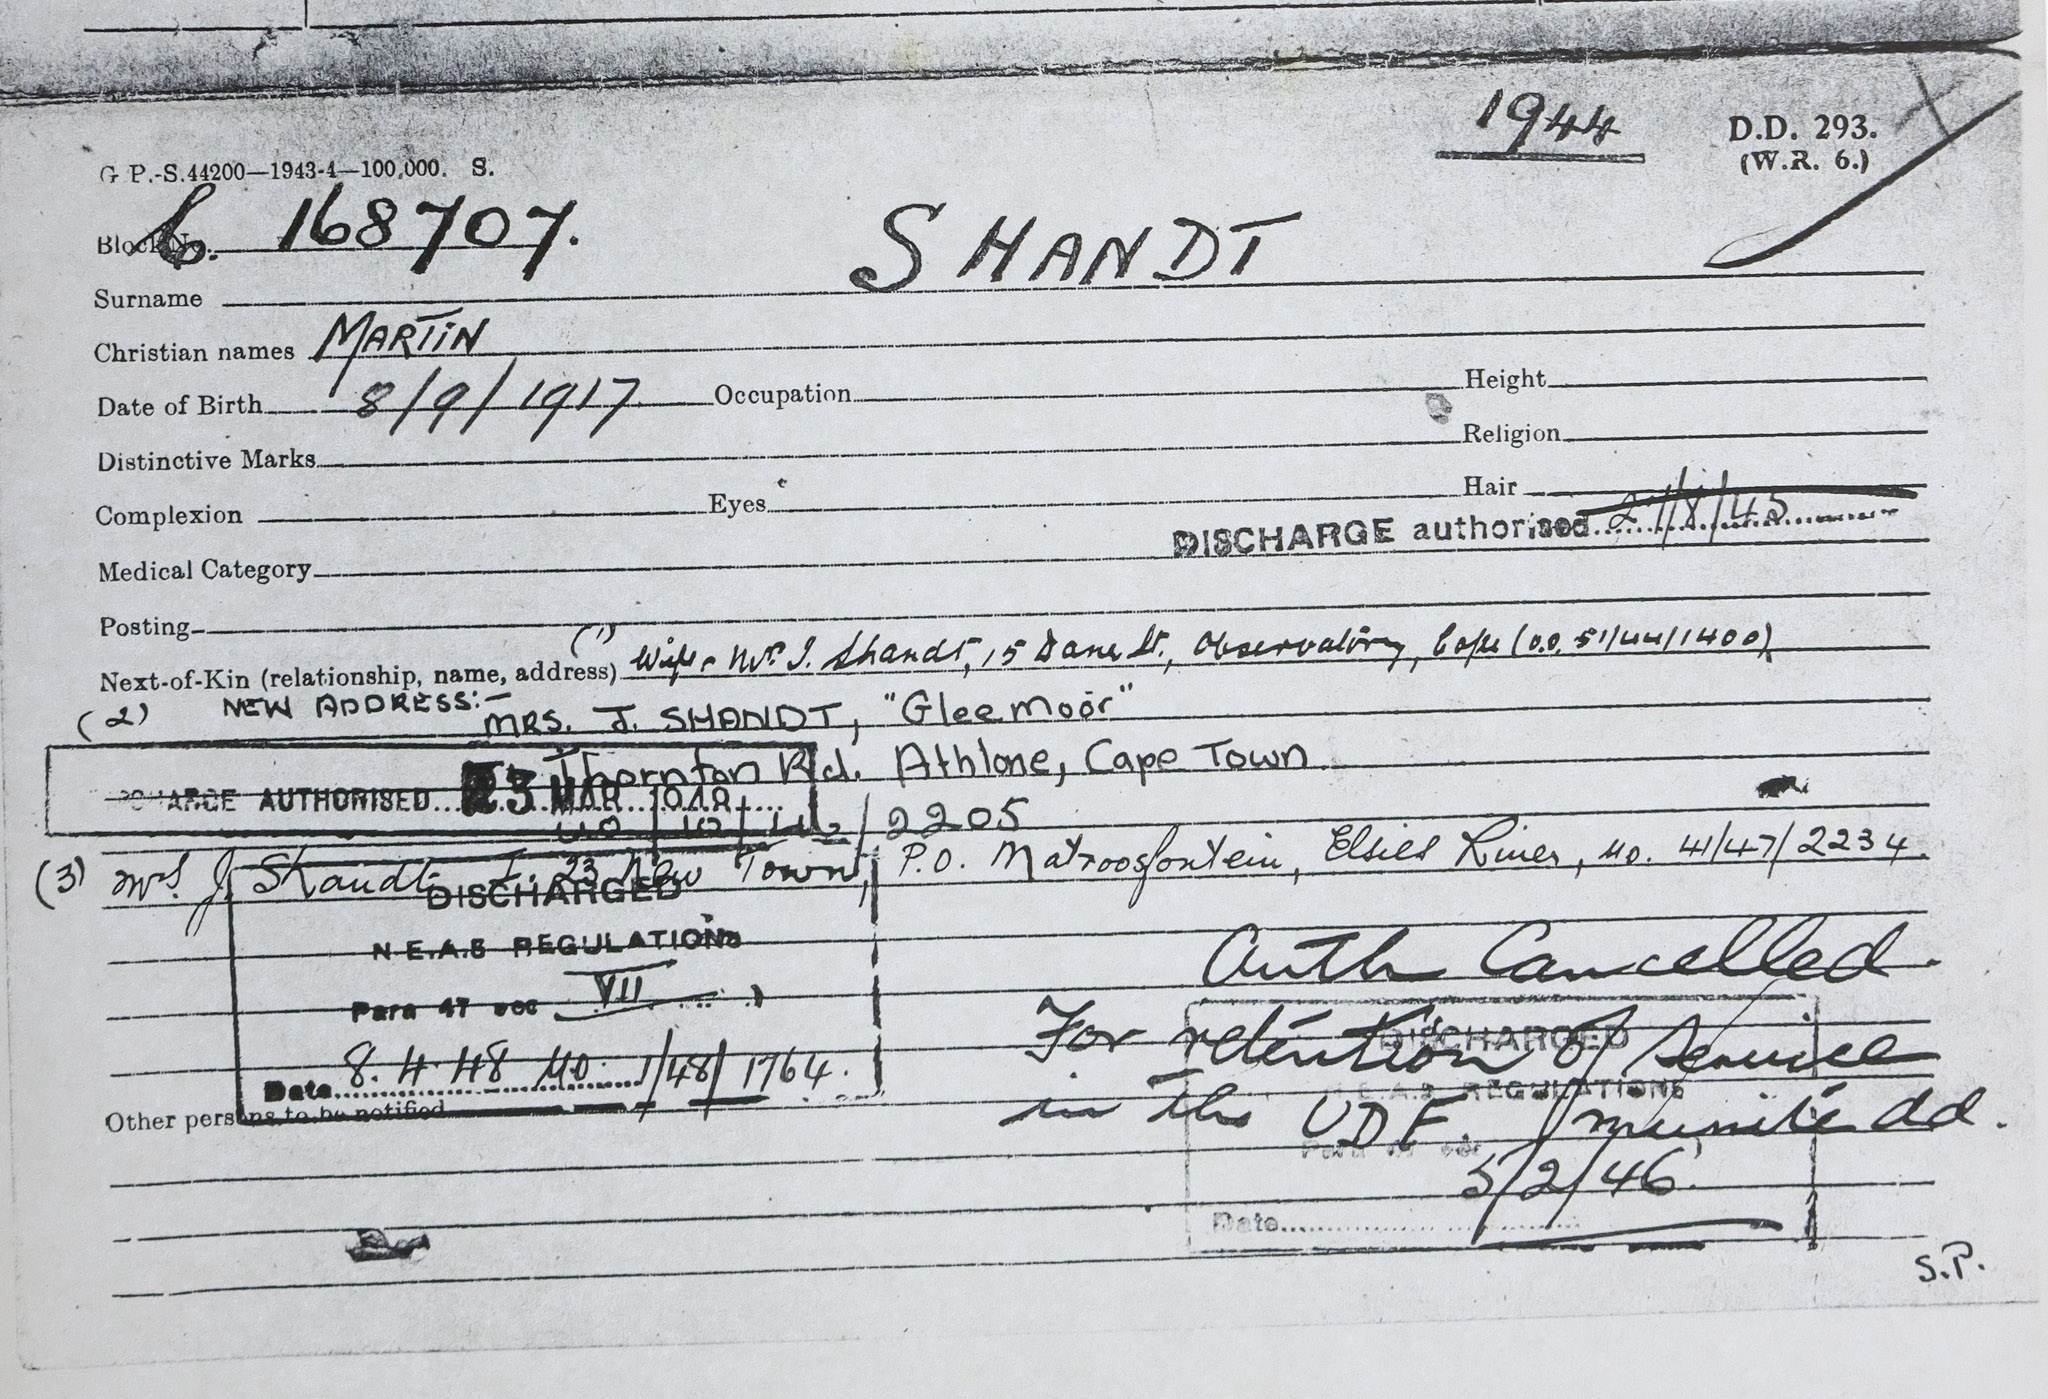 1944
D.D. 293.
(W.R. 6.)
G P.-S.44200—1943-4—100,000. S.
Block No. C. 168707.
Surname SHANDT
Christian names MARTIN
Date of Birth 8/9/1917 Occupation Height
Distinctive Marks Religion
Complexion Eyes Hair
DISCHARGE authorised /45
Medical Category
Posting
Next-of-Kin (relationship, name, address) (1) Wife - Mrs J. Shandt, 15 Dane St., Observatory, Cape (O.O. 51/44/1400)
(2) NEW ADDRESS:- MRS. J. SHANDT, "Gleemoor"
Thornton Rd. Athlone, Cape Town
CHARGE AUTHORISED 23 MAR 1948
/2205
(3) Mrs J. Shandt 23 New Town, P.O. Matroosfontein, Elsies River, MO. 41/47/2234
DISCHARGED
N.E.A.S REGULATIONS
Para 47 sec VII )
Date 8.4.48 MO 1/48/1764.
Other persons to be notified
Auth Cancelled.
For retention of Service
in the UDF. minute dd.
5/2/46
DISCHARGED
N.E.A.S REGULATIONS
Para 47 sec
Date
S.P.